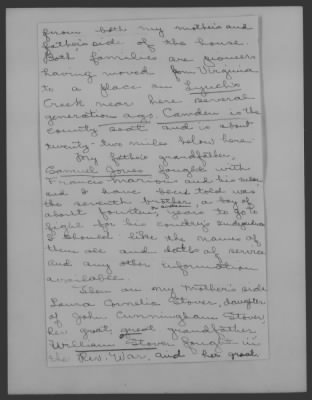 from both my mother's and
father's side of the house.
Both families are pioneers
having moved from Virginia
to a place on Lynch's
Creek near here several
generations ago. Camden is the
county seat and is about
twenty-two miles below here.
My father's grandfather,
Samuel Jones fought with
Francis Marion and his men
and I have been told was
the seventh brother, a boy of
about fourteen years to go to
fight for his country's
I should like the names of
them all and dates of service
and any other information
available.
Then on my Mother's side
Laura Cornelia Stover, daughter
of John Cunningham Stover,
her great, great grandfather
William Stover fought in
the Rev. War, and her great